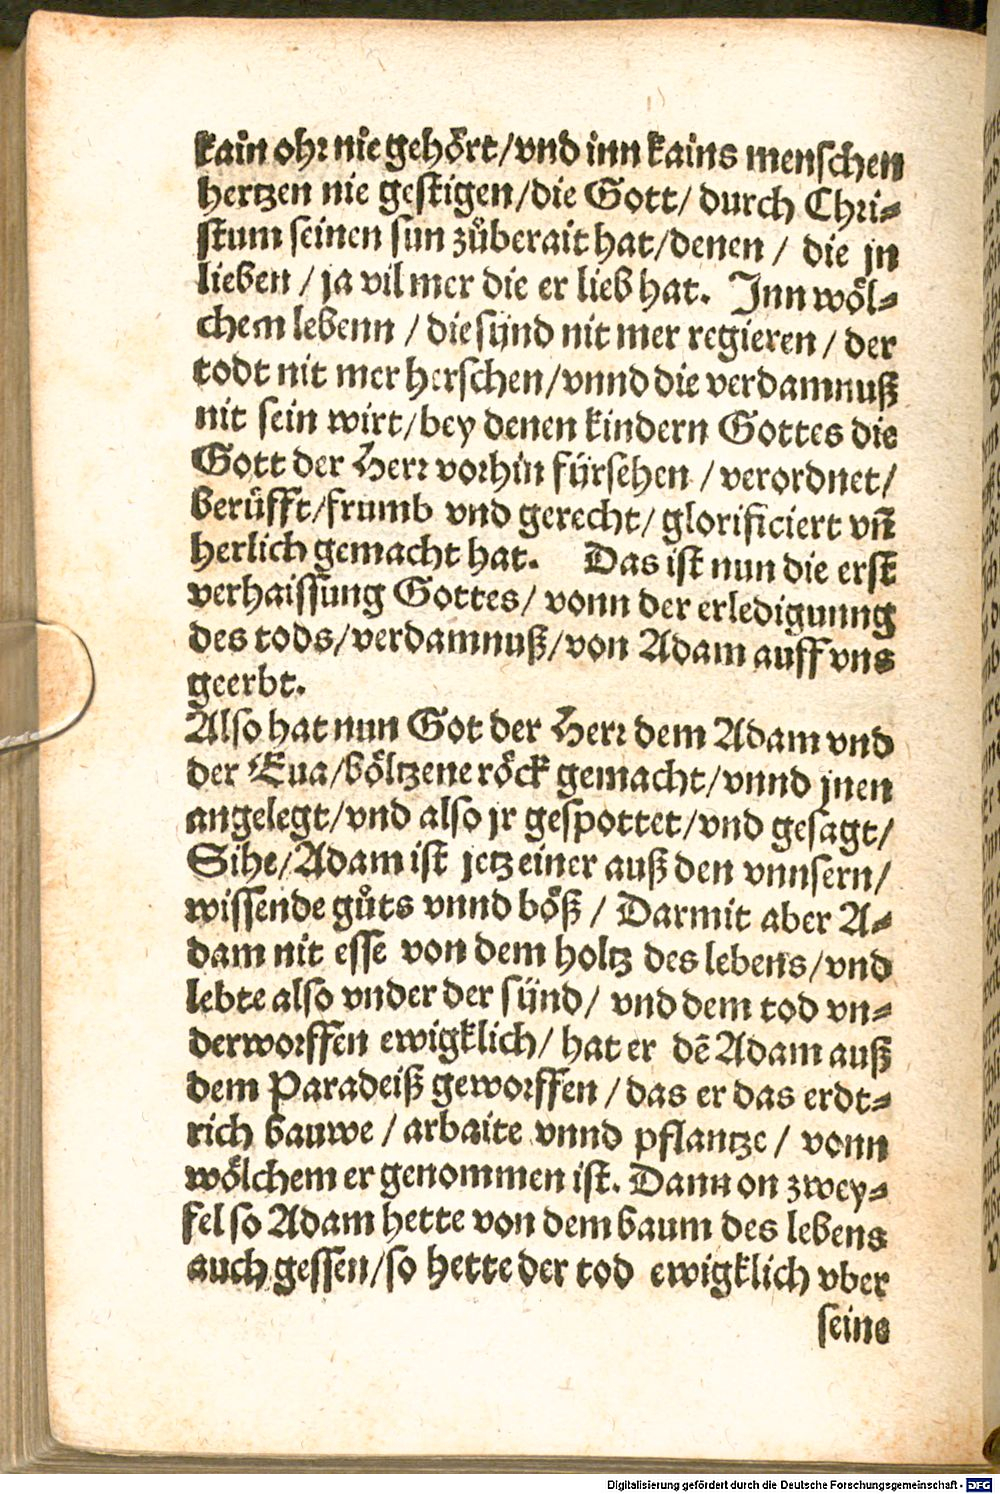 kain ohr nie gehört/vnd inn kains menschen
hertzen nie gestigen/die Gott/ durch Chri⸗
stum seinen sun zůberait hat/denen / die jn
lieben / ja vil mer die er lieb hat. Inn wöl⸗
chem lebenn / die sünd nit mer regieren / der
todt nit mer herschen/vnnd die verdamnuß
nit sein wirt/bey denen kindern Gottes die
Gott der Herr vorhin fürsehen / verordnet/
berüfft/frumb vnd gerecht/ glorificiert vñ
herlich gemacht hat. Das ist nun die erst
verhaissung Gottes/ vonn der erledigunng
des tods/verdamnuß/von Adam auff vns
geerbt.
Also hat nun Got der Herr dem Adam vnd
der Eua/böltzene röck gemacht/vnnd jnen
angelegt/vnd also jr gespottet/vnd gesagt/
Sihe/Adam ist jetz einer auß den vnnsern/
wissende gůts vnnd böß / Darmit aber A⸗
dam nit esse von dem holtz des lebens/vnd
lebte also vnder der sünd/ vnd dem tod vn⸗
derworffen ewigklich/ hat er dē Adam auß
dem Paradeiß geworffen / das er das erdt⸗
rich bauwe / arbaite vnnd pflantze / vonn
wölchem er genommen ist. Dann on zwey⸗
fel so Adam hette von dem baum des lebens
auch gessen/so hette der tod ewigklich vber
seine
Digitalisierung gefördert durch die Deutsche Forschungsgemeinschaft - DFG